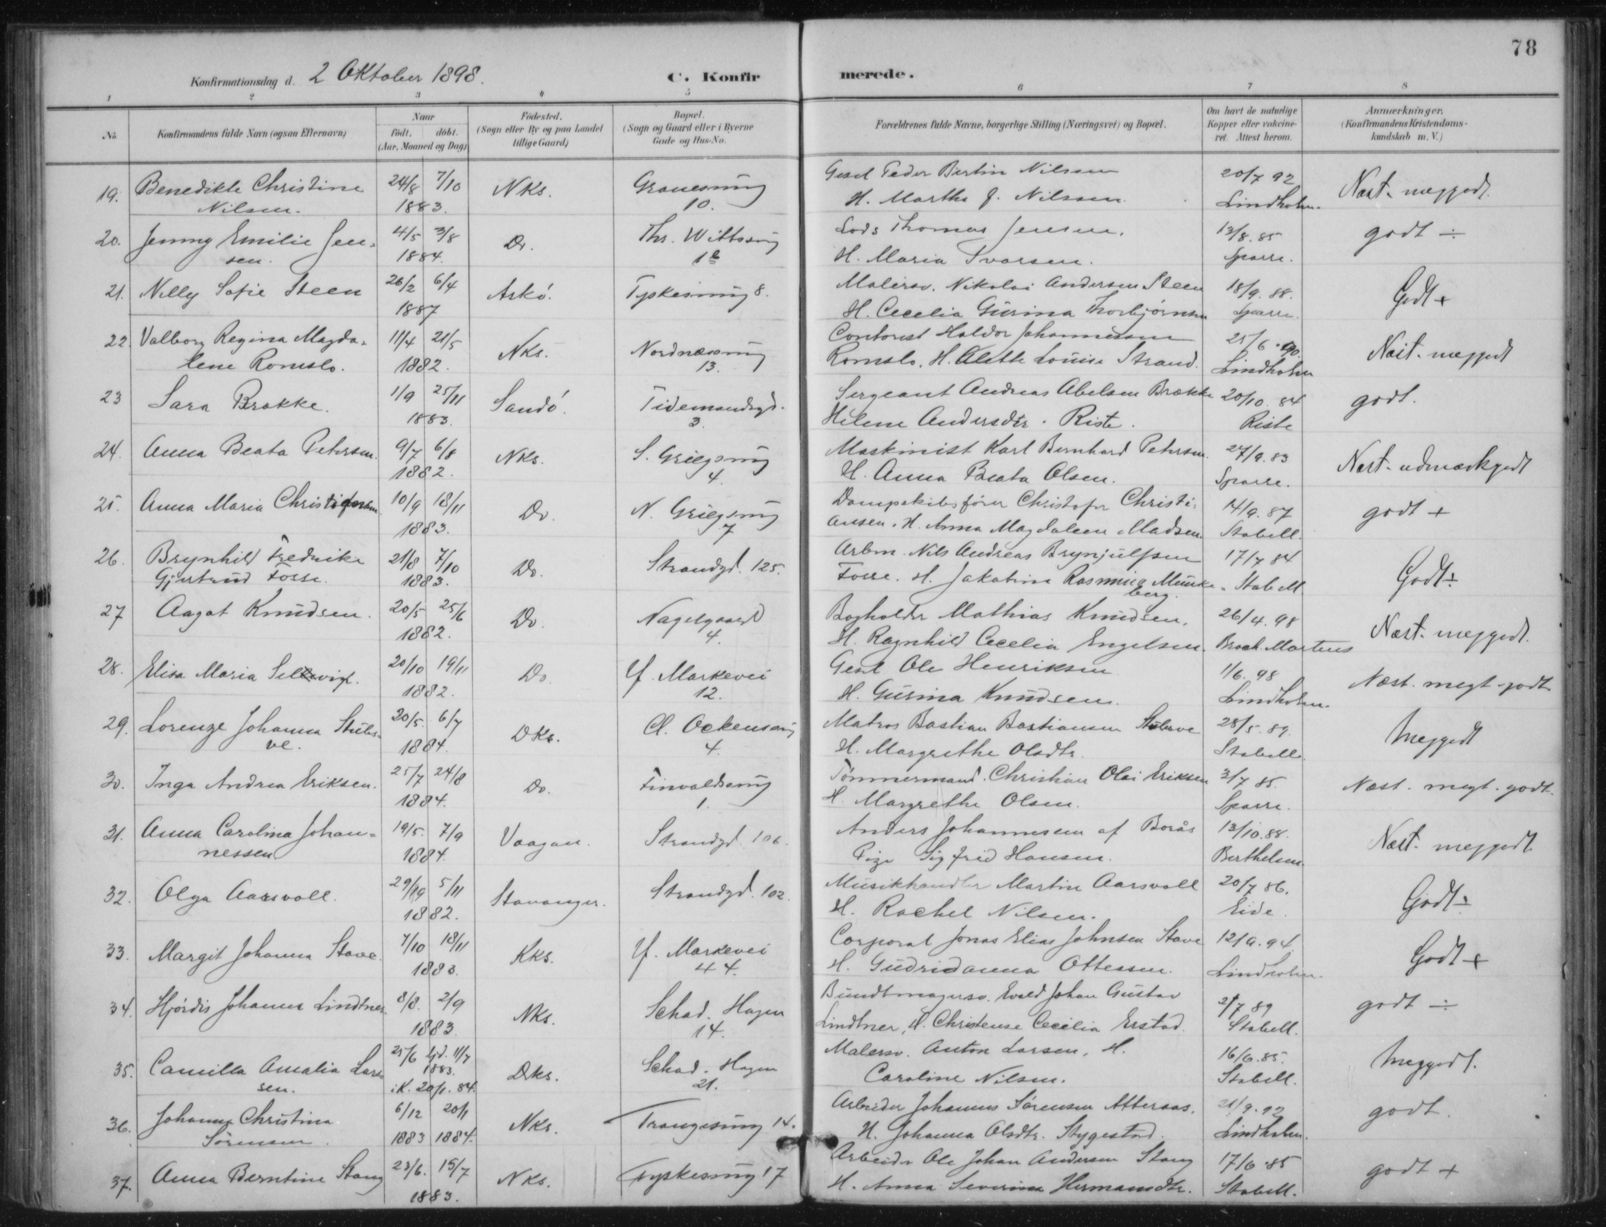 78
Konfirmationsdag d. 2 Oktober 1898.
C. Konfirmerede.
1 2 3 4 5 6 7 8
No. Konfirmandens fulde Navn (ogsaa Efternavn) Naar født. døbt. (Aar, Maaned og Dag) Fødested. (Sogn eller By og paa Landet tillige Gaard) Bopæl. (Sogn og Gaard eller i Byerne Gade og Hus-No. Forældrenes fulde Navne, borgerlige Stilling (Næringsvei) og Bopæl. Om havt de naturlige Kopper eller vakcineret. Attest herom. Anmærkninger. (Konfirmandens Kristendomskundskab m. V.)
19. Benedikte Christine 24/8 7/10 Nks. Peder Bertin Nilsen 20/7 92 Næst. meggodt.
Nilsen. 1883. 10. H. Marthe J. Nilssen Lindholm.
20. Jenny Emilie Jen- 4/5 3/8 Do. Thr. Wittssmug Lods Thomas Jensen. 13/8. 85 godt ÷
sen. 1884. H. Maria Ivarsen. Sparre.
21. Nelly Sofie Steen 26/2 6/4 Askö. Tyskesmug 8. Malersv. Nikolai Andersen Steen 18/9. 88. Godt +
1887 H. Cecelia Gurina Thorbjørnsen Sparre.
22. Valborg Regina Magda- 11/4 21/5 Nks. Nordnæssmug Contorist Haldor Johannessen 25/6. 90. Næst. meggodt
lene Romslo. 1882. 13. Romslo. H. Alette Louise Strand. Lindholm
23 Sara Brække. 1/9 25/11 Sandö. Tidemandsgd. Sergeant Andreas Abelsen Brække 20/10. 84 godt.
1883. 3. Helene Andersdtr. Riste. Riste
24. Anna Beata Petersen. 9/7 6/8 Nks. S. Griegsmug Maskinist Karl Bernhard Petersen. 27/9. 83 Næst. udmærkgodt
1882. 4. H. Anna Beata Olsen. Sparre.
25. Anna Maria Christiansen 10/9 18/11 Do. N. Griegsmug Dampskibsfører Christofer Christi- 14/9. 87 godt +
1883. 7 ansen. H. Anna Magdalene Madsen Stabell.
26. Brynhild Fredrikke 21/8 7/10 Do. Strandgd. 125. Arbm. Nils Andreas Brynjulfsen 17/7 84 Godt ÷
Gjertrud Fosse. 1883. Fosse. H. Jakobine Rasmine Munke- Stabell
berg.
27 Aagot Knudsen. 20/5 25/6 Do. Nagelgaard Bogholder Mathias Knudsen. 26/4. 98 Næst. meggodt.
1882. 4. H. Ragnhild Cecelia Engelsen. Broch Martens
28. Elisa Maria 20/10 19/11 Do. Y. Markevei Ole Henriksen 1/6. 98 Næst. megt. godt
1882. 12. H. Gurina Knudsen. Lindholm.
29. Lorenze Johanna Stubs- 20/5 6/7 Dks. Cl. Ockensmug Matros Bastian Bastiansen 28/5. 89. Meggodt
ve. 1884. 4. H. Margrethe Olsdtr. Stabell
30. Inga Andrea Eriksen. 25/7 24/8 Do. Finvoldsmug Tømmermand. Christian Olai Eriksen 3/7 85. Næst. megt. godt.
1884. 1. H. Margrethe Olsen. Sparre.
31. Anna Carolina Johan- 19/5 7/9 Vaagan. Strandgd. 106. Anders Johannessen af Borås 13/10. 88. Næst. meggodt
nessen 1884. Pige Sigfrid Hansen. Berthelsen
32. Olga Aarsvoll. 5/11 Stavanger. Strandgd. 102. Musikhandler Martin Aarsvoll 20/7 86. Godt ÷
1882. H. Rachel Nilsen. Eide.
33. Margit Johanna Stave. 7/10 18/11 Kks. Y. Markevei Corporal Jonas Elias Johnsen Stave 12/9. 94. Godt +
1883. 44. H. Gudridanna Ottessen. Lindholm.
34. Hjördis Johanne Lindtner 8/8. 2/9 Nks. Schad. Hagen Bundtmagersv. Evald Johan Gustav 2/7 89 godt ÷
1883. 14. Lindtner, H. Christense Cecilia Erstad. Stabell.
35. Camilla Amalia Lar- 25/6 hjd. 11/7 Dks. Schad. Hagen Malersv. Anton Larsen. H. 16/6. 85. Meggodt.
sen. 1883. i K. 20/1. 84. 21. Caroline Nilsen. Stabell.
36. Johanne Christina 6/12 20/1 Nks. Trangesmug 14. Arbeider Johannes Sörensen Atteraas. 21/9. 92 godt.
Sörensen. 1883 1884. H. Johanna Olsdtr. Stygestad. Lindholm.
37. Anna Berntine Stang 23/6. 15/7 Nks. Tyskesmug 17 Arbeider Ole Johan Andersen Stang 17/6. 85 godt +
1883. H. Anna Severine Hermansdtr. Stabell.